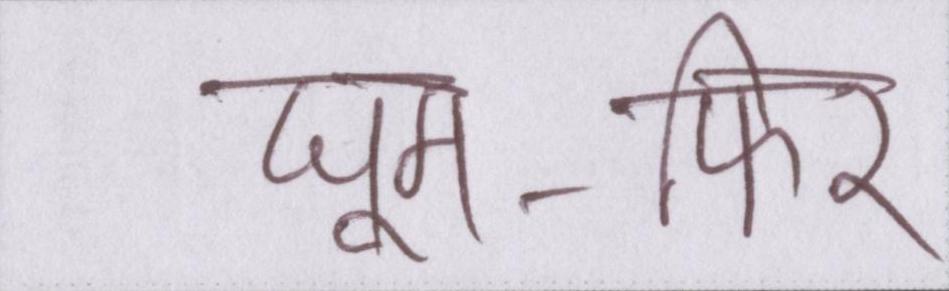 घूम-फिर